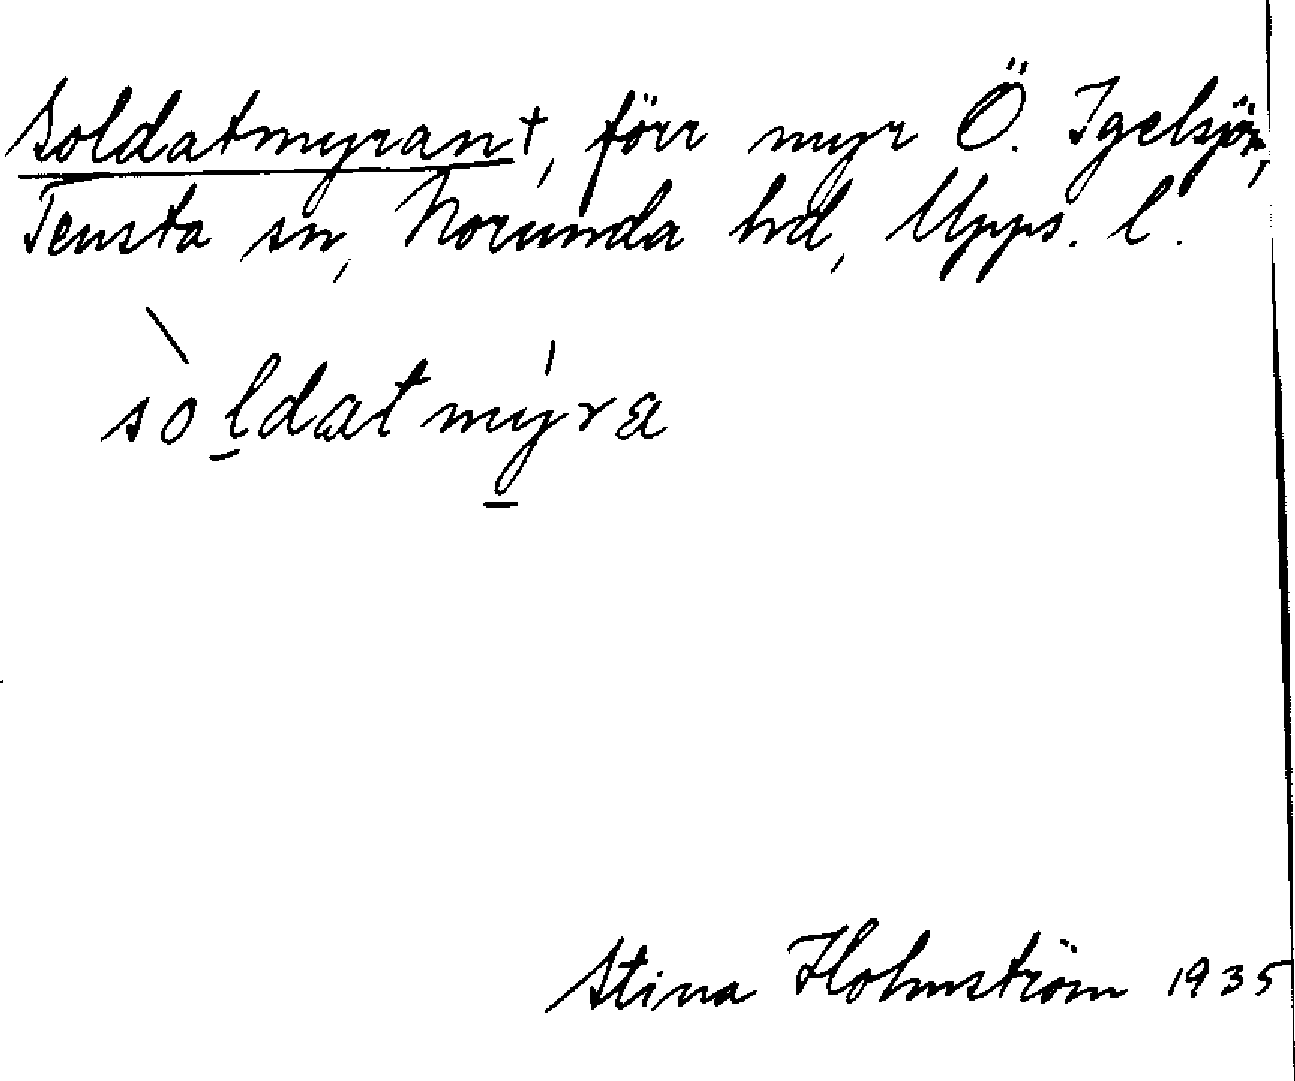 Soldatmyran†, förr myr Ö. Igelsjön,
Tensta sn, Norunda hd, Upps. l.
sòldatmy̍ra
Stina Holmström 1935